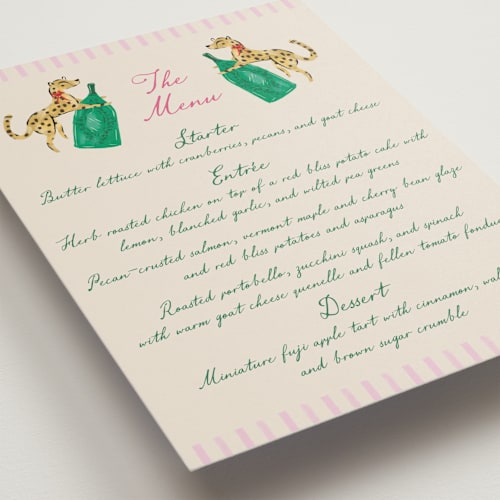 The
Menu
Starter
Butter lettuce with cranberries, pecans, and goat cheese
Entrée
Herb roasted chicken on top of a red bliss potato cake with
lemon, blanched garlic, and wilted pea greens
Pecan-crusted salmon, vermont maple and cherry bean glaze
and red bliss potatoes and asparagus
Roasted portobello, zucchini squash, and spinach
with warm goat cheese quenelle and fellen tomato fondue
Dessert
Miniature fuji apple tart with cinnamon,
and brown sugar crumble